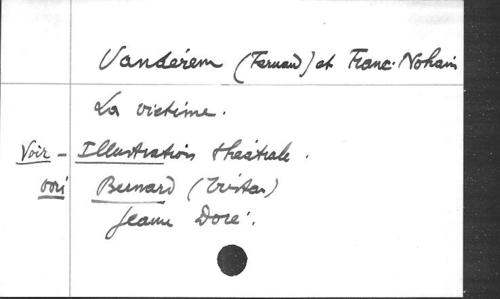 Vandérem (Fernand) et Franc-Nohain
La victime.
Voir - Illustration théâtrale.
Bernard (Tristan)
Jeanne Doré.